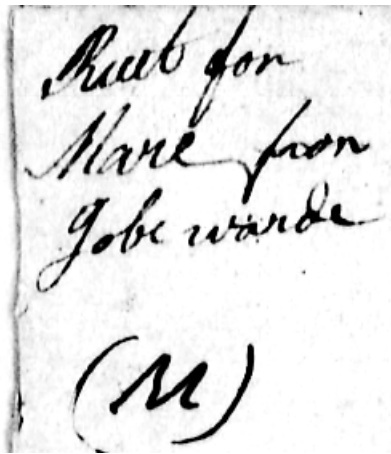 Rect for
Mare from
Gobe warde
(M)